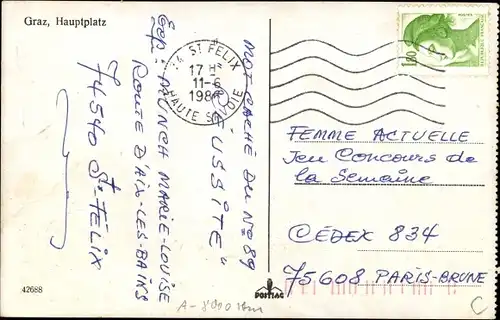 Graz, Hauptplatz
74 ST FELIX
17 H
11-6
198
HAUTE SAVOIE
1,80
MOT CACHÉ DU N° 89
"RÉUSSITE"
Exp: MUNCH MARIE-LOUISE
ROUTE D'AIX-LES-BAINS
74540 St-FÉLIX
FEMME ACTUELLE
Jeu Concours de
la Semaine
CEDEX 834
75608 PARIS-BRUNE
42688
POSTIAG
C